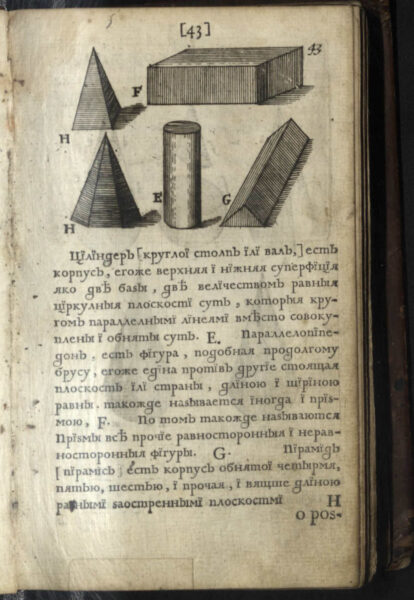 [43]
43
F
H
H
E
G
Цїлїндерь [круглоі столпь їлї валь,] есть
корпусь, егоже верхняя ї нїжняя суперфіція
яко двѣ basы, двѣ велїчествомь равныя
ціркулныя плоскостї суть, которыя кру-
гомь параллелнымї лїнеямї вмѣсто совоку-
плены ї обняты суть. E. Параллелопіпе-
донь. есть фігура, подобная продолгому
брусу, егоже едїна протївь другїе стоящая
плоскость їлї страны, длїною ї шїрїною
равны. такожде наѕывается їногда ї прїs-
мою, F. По томь такожде наѕываются
Прїsмы всѣ прочїе равносторонныя ї нерав-
носторонныя фїгуры. G. Пїрамїдь
[пїрамїсь] есть корпусь обнятої четырмя,
пятью, шестью, ї прочая, ї вящше длїною
равнымї ѕаостреннымї плоскостмї H
о pos-